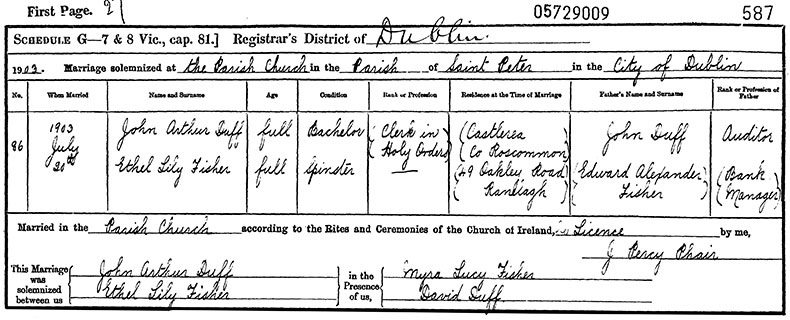 First Page.
05729009 587
SCHEDULE G—7 & 8 Vic., cap. 81.] Registrar's District of Dublin.
1903. Marriage solemnized at the Parish Church in the Parish of Saint Peter in the City of Dublin
No. When Married Name and Surname Age Condition Rank or Profession Residence at the Time of Marriage Father's Name and Surname Rank or Profession of Father
86 1903 July 20th
John Arthur Duff full Bachelor Clerk in Holy Orders Castlerea Co Roscommon John Duff Auditor
Ethel Lily Fisher full Spinster — 49 Oakley Road Ranelagh Edward Alexander Fisher Bank Manager
Married in the Parish Church according to the Rites and Ceremonies of the Church of Ireland, by Licence by me,
J Percy Phair
This Marriage was solemnized between us
John Arthur Duff
Ethel Lily Fisher
in the Presence of us,
Myra Lucy Fisher
David Duff